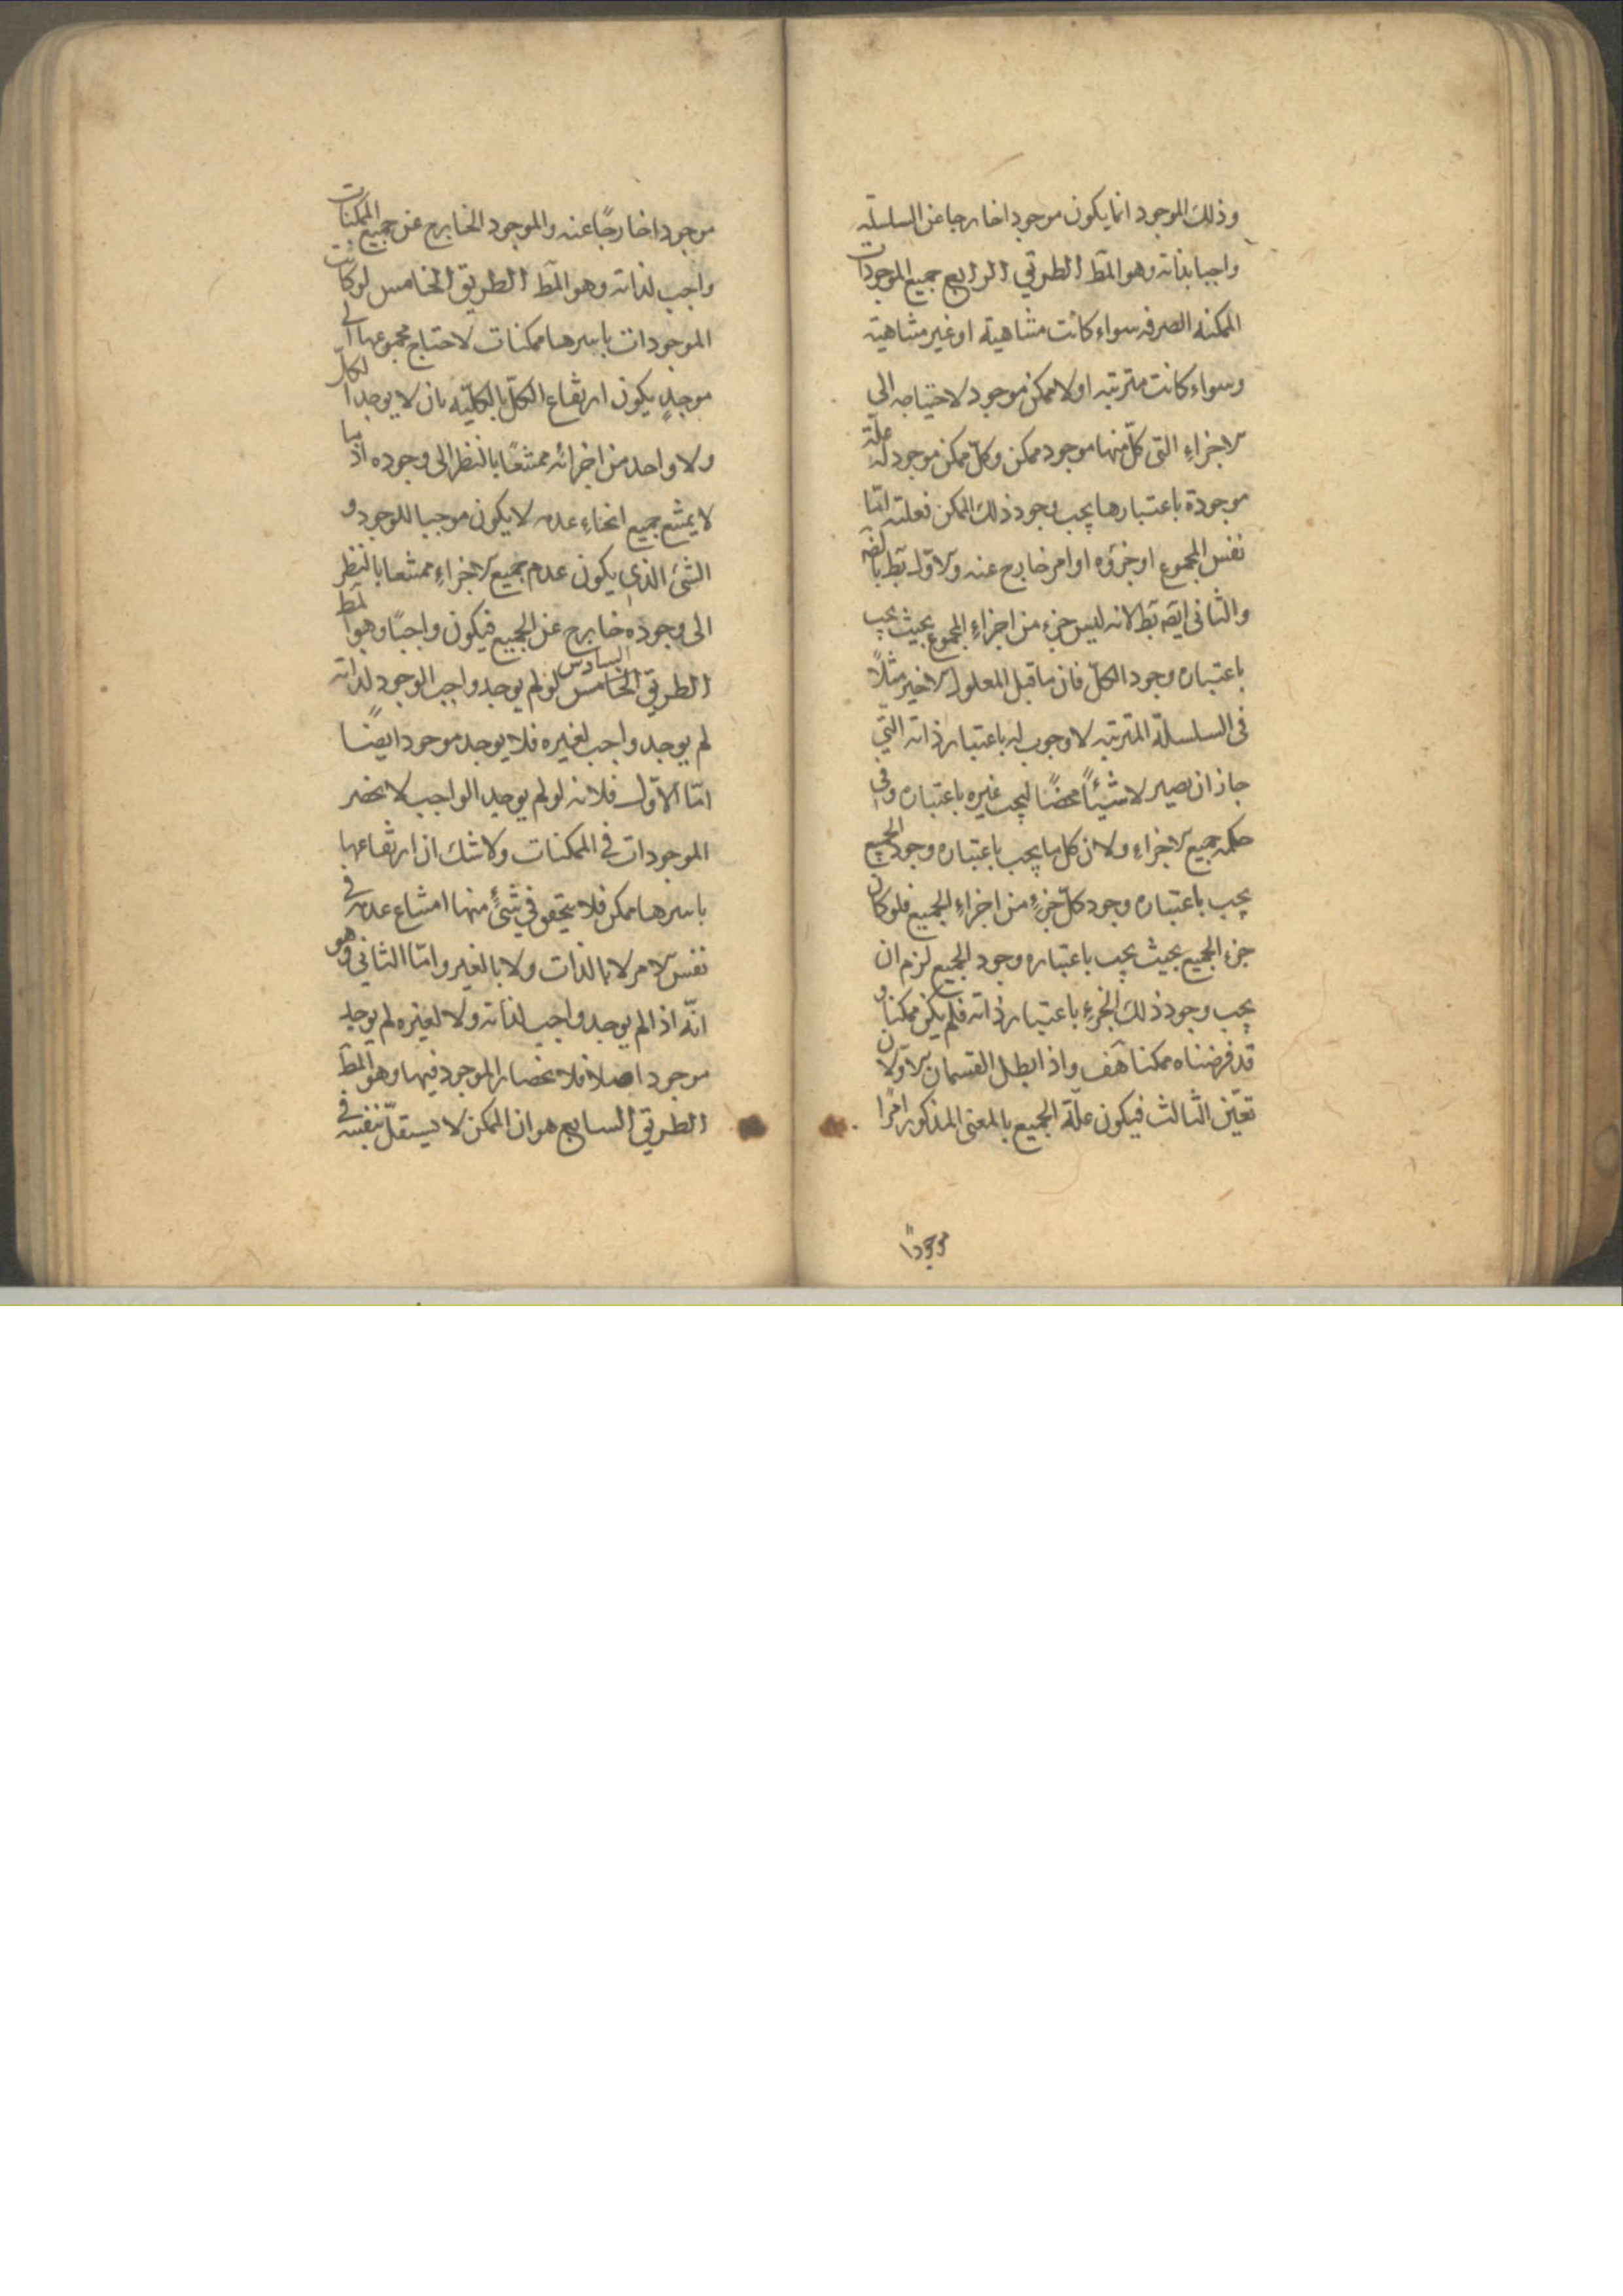 وذلك الموجود انما يكون موجودا خارجا عن السلسلة
واجبا بذاته وهو المط الطريق الرابع جميع الموجودات
الممكنة الصرفه سواء كانت متناهية او غير متناهية
وسواء كانت مترتبه او لا ممكن موجود لاحتياجه الى
الاجزاء التى كلّ منها موجود ممكن وكلّ ممكن موجود له علّة
موجودة باعتبارها يجب وجود ذلك الممكن فعلته امّا
نفس المجموع او جزؤه او امر خارج عنه والاوّل بط بالضه
والثانى ايضه بط لانه ليس جزء من اجزاء المجموع بحيث يجب
باعتباره وجود الكلّ فان ما قبل المعلول الاخير مثلاً
فى السلسلة المترتبه لا وجوب له باعتبار ذاته التّي
جاز ان يصير لا شيئاً محضًا ليجب غيره باعتباره وفى
حكمه جميع الاجزاء ولان كل ما يجب باعتباره وجود الجميع
يجب باعتباره وجود كلّ جزءٍ من اجزاء الجميع فلو كان
جزء الجميع بحيث يجب باعتباره وجود الجميع لزم ان
يجب وجود ذلك الجزءِ باعتبار ذاته فلم يكن ممكنا و
قد فرضناه ممكنا هف واذا بطل القسمان الاوّلان
تعيّن الثالث فيكون علّة الجميع بالمعنى المذكور امرًا
موجودًا
موجودا خارجًا عنه والموجود الخارج عن جميع الممكنات
واجب لذاته وهو المط الطريق الخامس لو كانت
الموجودات باسرها ممكنات لاحتاج مجموعها الى
موجدٍ يكون ارتفاع الكلّ بالكليّه بان لا يوجد الكلّ
ولا واحد من اجزائه ممتنعًا بالنظر الى وجوده اذ ما
لا يمتنع جميع انحاء عدمه لا يكون موجبا للوجود و
الشئ الذى يكون عدم جميع الاجزاءِ ممتنعا بالنظر
الى وجوده خارج عن الجميع فيكون واجبًا وهو المط
الطريق الخامس السادس لو لم يوجد واجب الوجود لذاته
لم يوجد واجب لغيره فلا يوجد موجود ايضًا
امّا الاوّل فلانه لو لم يوجد الواجب لانحصر
الموجودات فى الممكنات ولا شك ان ارتفاعها
باسرها ممكن فلا يتحقق فى شئٍ منها امتناع عدمه فى
نفس الامر لا بالذات ولا بالغير وامّا الثانى وهو
انّه اذا لم يوجد واجب لذاته ولا لغيره لم يوجد
موجود اصلا فلانحصار الموجود فيهما وهو المط
الطريق السابع هو ان الممكن لا يستقلّ بنفسه فى